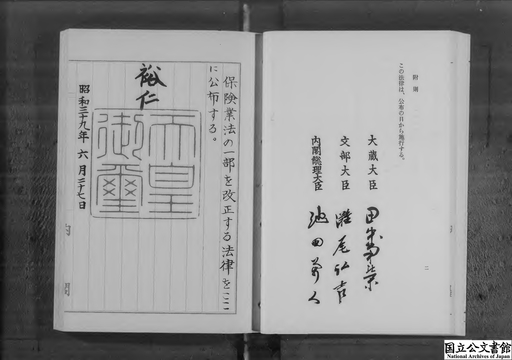 附則
この法律は、公布の日から施行する。
大蔵大臣 田中角栄
文部大臣 灘尾弘吉
内閣総理大臣 池田勇人
二
保険業法の一部を改正する法律をここ
に公布する。
裕仁
天皇
御璽
昭和三十九年 六月二十七日
国立公文書館
National Archives of Japan